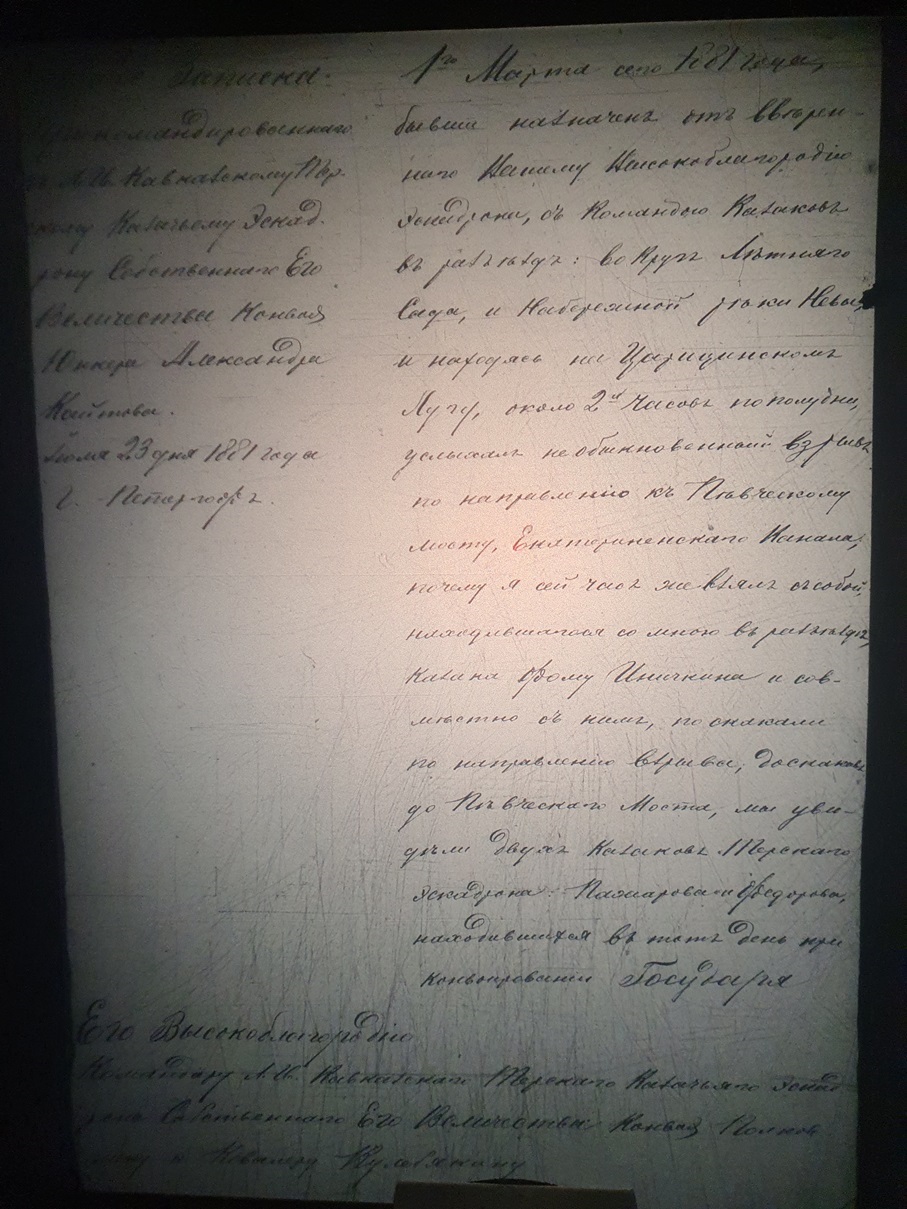 Записка:
командированнаго
Л. Гв. Кавказскому Тер.
скому Казачьему Эскад.
рону Собственнаго Его
Величества Конвоя
Юнкера Александра
Кайтова.
Іюля 23 дня 1881 года
г. Петергофъ.
1го Марта сего 1881 года,
бывши назначенъ отъ ввѣрен-
наго Вашему Высокоблагородію
Эскадрона, съ Командою Казаковъ
въ разъѣздъ: вокругъ Лѣтняго
Сада, и Набережной рѣки Невы,
и находясь на Царицинскомъ
Лугу, около 2х часовъ пополудни,
услыхалъ необыкновенный взрывъ
по направленію къ Пѣвческому
мосту, Екатериненскаго Канала,
почему я сей часъ же взялъ съ собой,
находившагося со мною въ разъѣздѣ,
Казака Фому и сов-
мѣстно съ нимъ, поскакали
по направленію взрыва, доскакавъ
до Пѣвческаго Моста, мы уви-
дѣли двухъ Казаковъ Терскаго
Эскадрона: и Федорова,
находившихся въ тотъ день при
конвоированіи Государя
Его Высокоблагородію
Командиру Л. Гв. Кавказскаго Терскаго Казачьяго Эскад
рона Собственнаго Его Величества Конвоя Полков
нику и Кавалеру Кулебякину